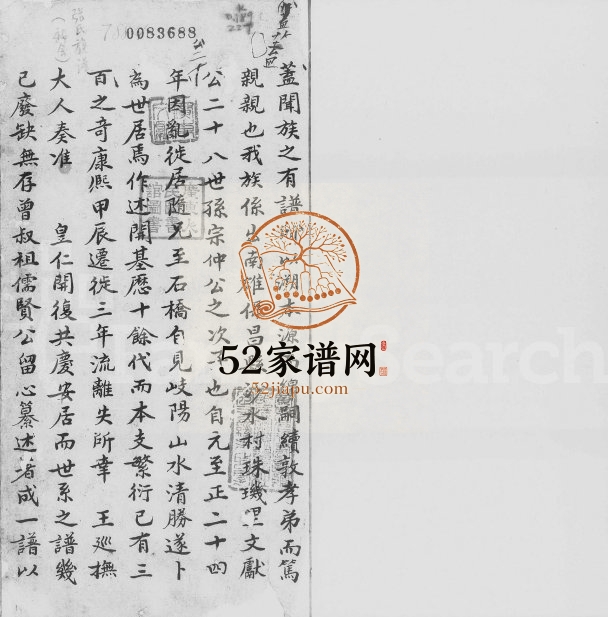 0083688
張氏族譜
蓋聞族之有譜所以溯本源綿嗣續敦孝弟而篤
親親也我族係出南雄保昌縣沙水村珠璣里文獻
公二十八世孫宗仲公之次子也自元至正二十四
年因亂徙居隨兄至石橋自見岐陽山水清勝遂卜
為世居焉作述開基歷十餘代而本支繁衍已有三
百之奇康熙甲辰遷徙三年流離失所幸 王廵撫
大人奏准 皇仁開復共慶安居而世系之譜幾
已廢缺無存曾叔祖儒賢公留心纂述畧成一譜以
52家谱网
52jiapu.com
Search